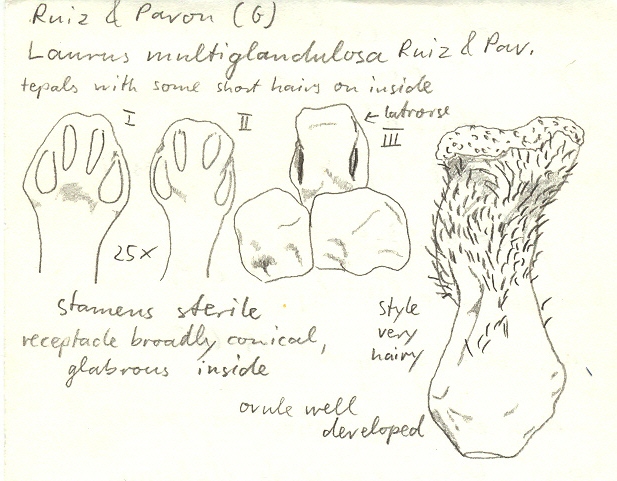 Ruiz & Pavon (G)
Laurus multiglandulosa Ruiz & Pav.
tepals with some short hairs on inside
I
II
← latrorse
III
25x
stamens sterile
receptacle broadly conical,
glabrous inside
style
very
hairy
ovule well
developed